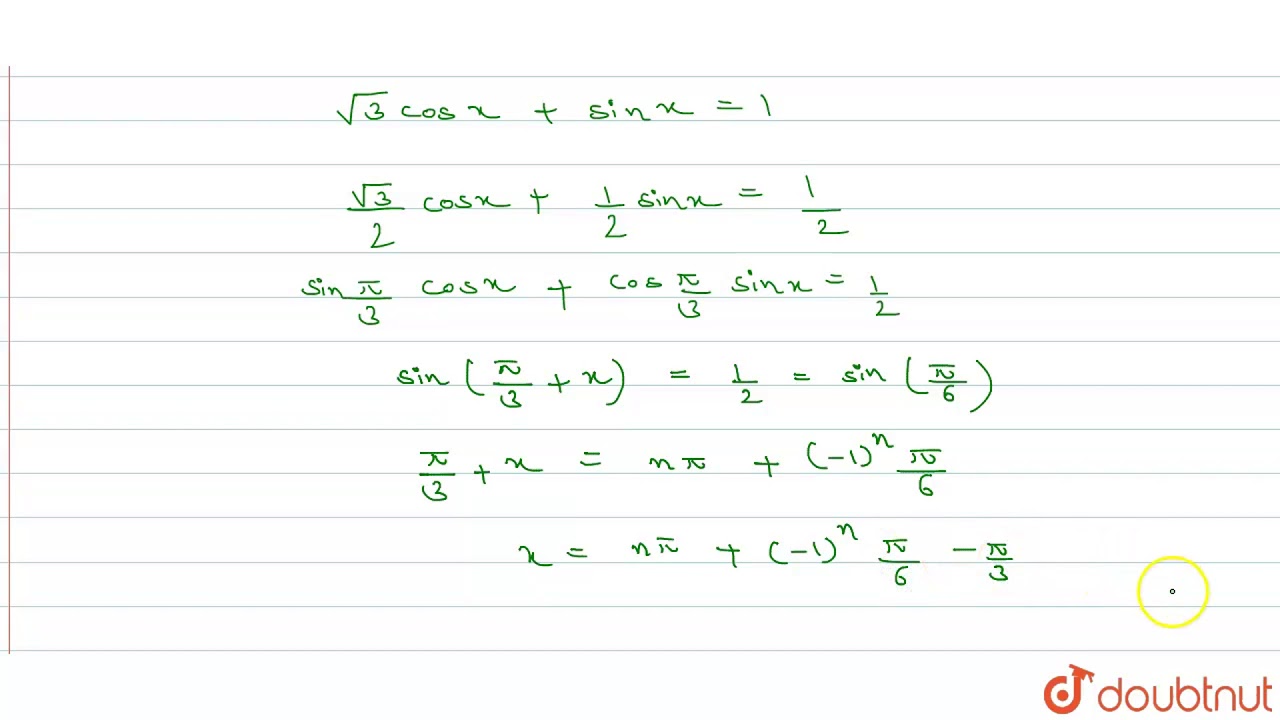 √3 cos x + sin x = 1
√3/2 cos x + 1/2 sin x = 1/2
sin π/3 cos x + cos π/3 sin x = 1/2
sin (π/3 + x) = 1/2 = sin (π/6)
π/3 + x = nπ + (-1)^n π/6
x = nπ + (-1)^n π/6 - π/3
doubtnut